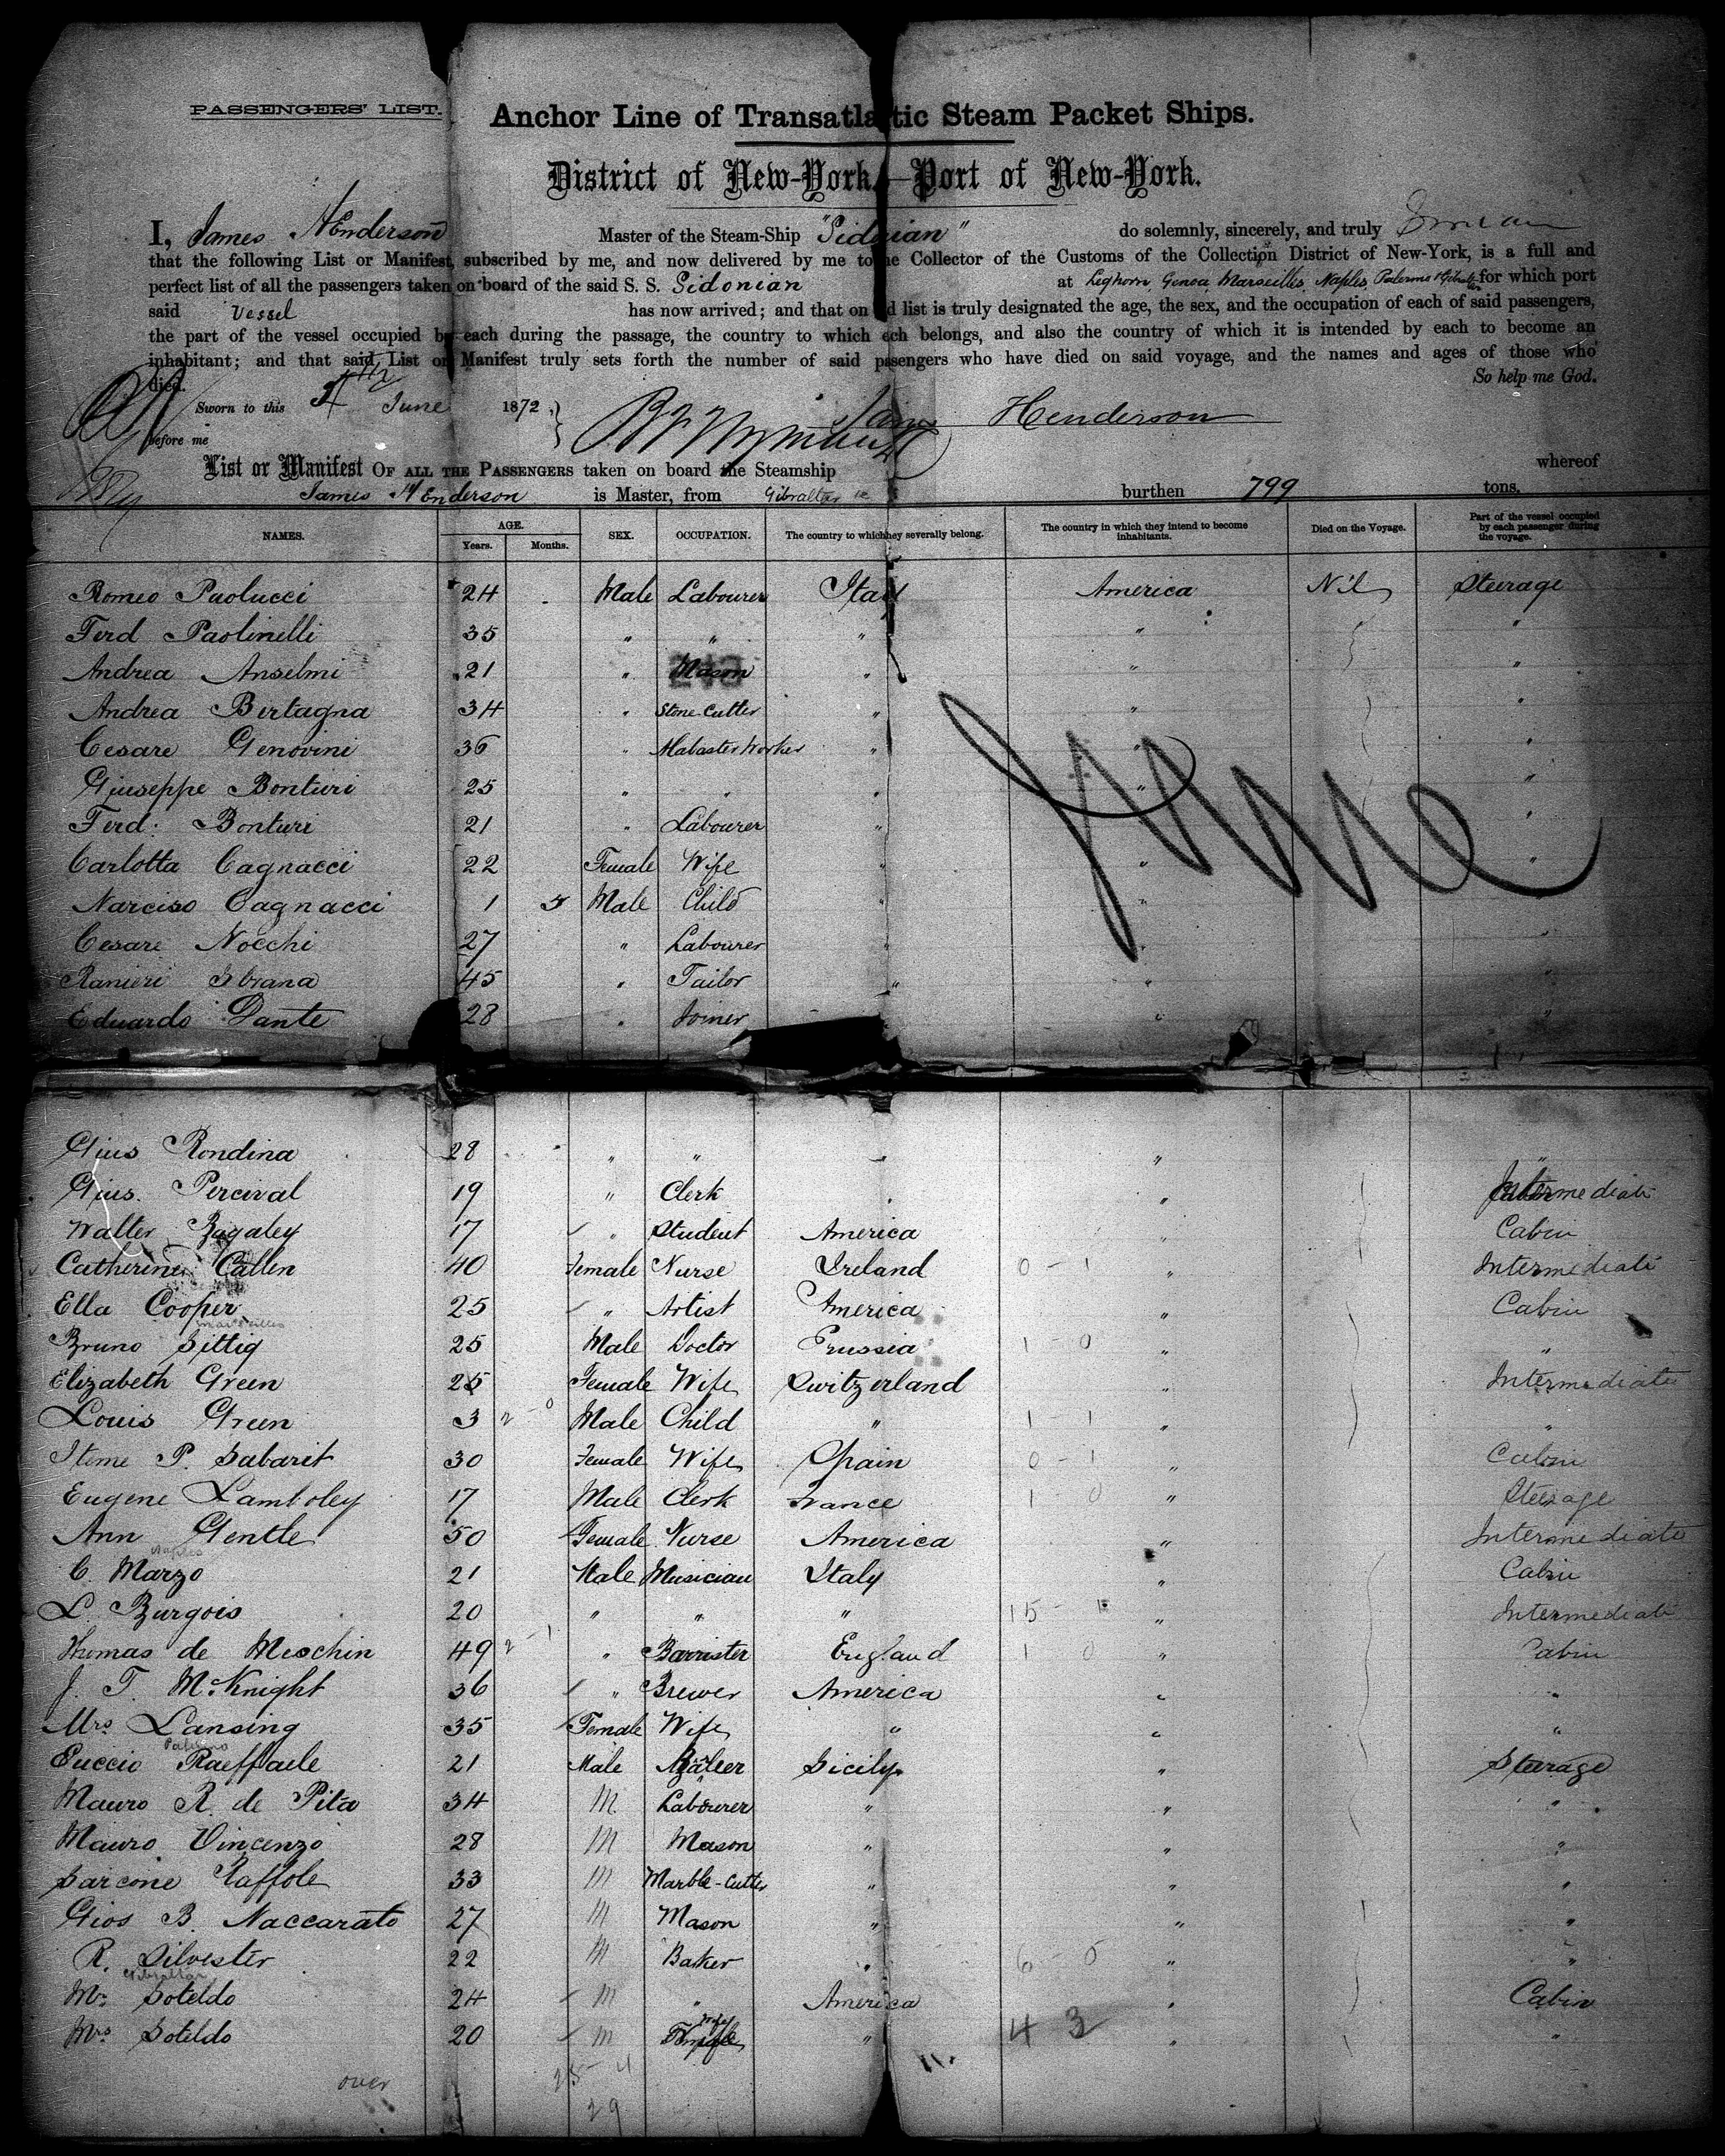 PASSENGERS' LIST.
Anchor Line of Transatlantic Steam Packet Ships.
District of New-York—Port of New-York.
I, James Henderson Master of the Steam-Ship "Sidonian" do solemnly, sincerely, and truly
that the following List or Manifest, subscribed by me, and now delivered by me to the Collector of the Customs of the Collection District of New-York, is a full and
perfect list of all the passengers taken on board of the said S. S. Sidonian at Leghorn, Genoa, Marseilles, Naples, Palermo & Gibraltar for which port
said Vessel has now arrived; and that on said list is truly designated the age, the sex, and the occupation of each of said passengers,
the part of the vessel occupied by each during the passage, the country to which each belongs, and also the country of which it is intended by each to become an
inhabitant; and that said List or Manifest truly sets forth the number of said passengers who have died on said voyage, and the names and ages of those who
died. So help me God.
Sworn to this 5th June 1872 James Henderson
before me
List or Manifest OF ALL THE PASSENGERS taken on board the Steamship whereof
James Henderson is Master, from Gibraltar &c burthen 799 tons.
NAMES. AGE. Years. Months. SEX. OCCUPATION. The country to which they severally belong. The country in which they intend to become inhabitants. Died on the Voyage. Part of the vessel occupied by each passenger during the voyage.
Romeo Paolucci 24 Male Labourer Italy America Nil Steerage
Ferd Paolinelli 35 " " " " "
Andrea Anselmi 21 " Mason " " "
Andrea Bertagna 34 " Stone Cutter " " "
Cesare Genovini 36 " Alabaster Worker " " "
Giuseppe Bonturi 25 " " " " "
Ferd: Bonturi 21 " Labourer " "
Carlotta Cagnacci 22 Female Wife " " "
Narciso Cagnacci 1 5 Male Child " "
Cesare Nocchi 27 " Labourer " " "
Ranieri Sbrana 45 " Tailor " " "
Eduardo Dante 28 " Joiner " " "
Gius Rondina 28 " " " " "
Gius. Percival 19 " Clerk " " Intermediate
Walter Bagaley 17 " Student America " Cabin
Catherine Callen 40 Female Nurse Ireland 0 - 1 " Intermediate
Ella Cooper 25 " Artist America " Cabin
Marseilles
Bruno Sittig 25 Male Doctor Prussia 1 - 0 " "
Elizabeth Green 25 Female Wife Switzerland " Intermediate
Louis Green 3 2 - 0 Male Child " 1 - 1 " "
Iteme P. Sabarit 30 Female Wife Spain 0 - 1 " Cabin
Eugene Lamboley 17 Male Clerk France 1 - 0 " Steerage
Ann Gentle 50 Female Nurse America " Intermediate
Naples
C. Marzo 21 Male Musician Italy " Cabin
L. Burgois 20 " " " 15 - 1 " Intermediate
Thomas de Meschin 49 2 - 1 " Barrister England 1 0 " Cabin
J. T. McKnight 36 " Brewer America " "
Mrs Lansing 35 Female Wife " " "
Palermo
Puccio Raeffaele 21 Male Baker Sicily " Steerage
Mauro R. de Pita 34 M Labourer " " "
Mauro Vincenzo 28 M Mason " " "
Sarcone Raffole 33 M Marble-Cutter " " "
Gios B. Naccarato 27 M Mason " " "
R. Silvester 22 M Baker " 6 - 0 " "
Gibraltar
Mr Soteldo 24 M " America " Cabin
Mrs Soteldo 20 M Wife " 4 3 " "
over 25 - 4
29